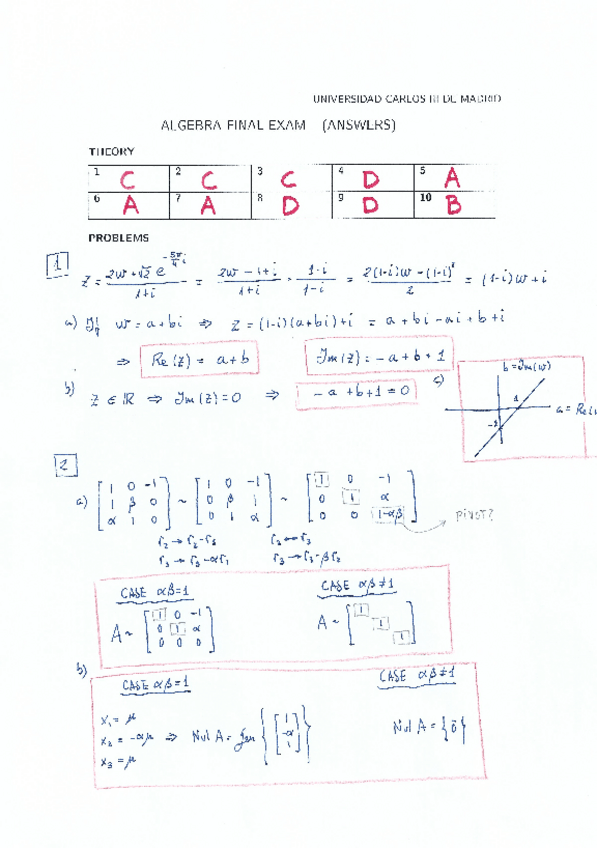 UNIVERSIDAD CARLOS III DE MADRID
ALGEBRA FINAL EXAM (ANSWERS)
THEORY
1 C 2 C 3 C 4 D 5 A
6 A 7 A 8 D 9 D 10 B
PROBLEMS
1
z = (2w + √2 e^(-5π/4 i))/(1+i) = (2w - 1 + i)/(1+i) · (1-i)/(1-i) = (2(1-i)w - (1-i)²)/2 = (1-i)w + i
a) If w = a+bi ⇒ z = (1-i)(a+bi)+i = a + bi - ai + b + i
⇒ Re(z) = a+b Im(z) = -a + b + 1
b) z ∈ ℝ ⇒ Im(z) = 0 ⇒ -a + b + 1 = 0
c) b = Im(w)
1
-1
a = Re(
2
a) [1 0 -1; 1 β 0; α 1 0] ~ [1 0 -1; 0 β 1; 0 1 α] ~ [1 0 -1; 0 1 α; 0 0 1-αβ] PIVOT?
r₂ → r₂-r₁ r₂ ↔ r₃
r₃ → r₃-αr₁ r₃ → r₃-βr₂
CASE αβ=1 CASE αβ≠1
A ~ [1 0 -1; 0 1 α; 0 0 0] A ~ [1; 1; 1]
b)
CASE αβ=1 CASE αβ≠1
x₁ = μ
x₂ = -αμ ⇒ Nul A = Gen {[1; -α; 1]} Nul A = {0̄}
x₃ = μ